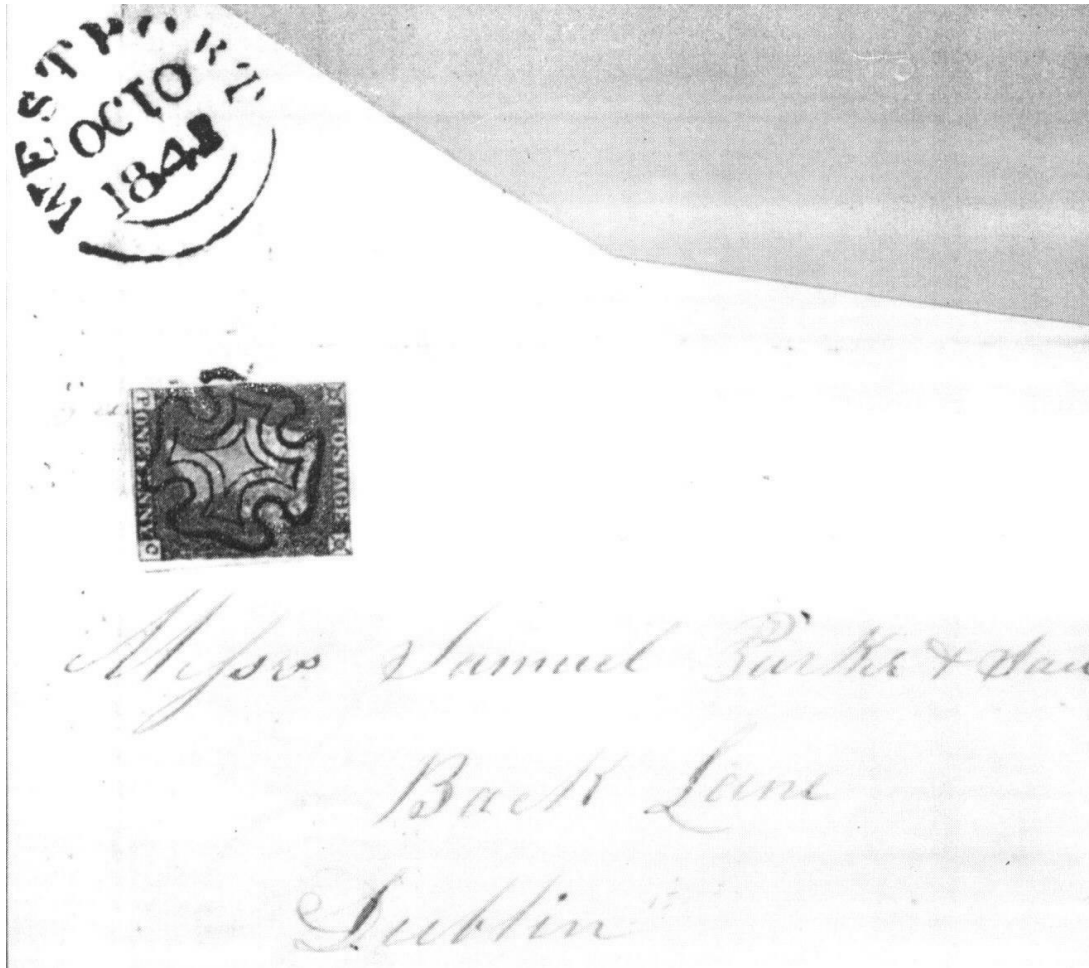 WESTPORT
OCT 10
184
POSTAGE
ONE PENNY
C
Messrs Samuel Parker &
Back Lane
Dublin